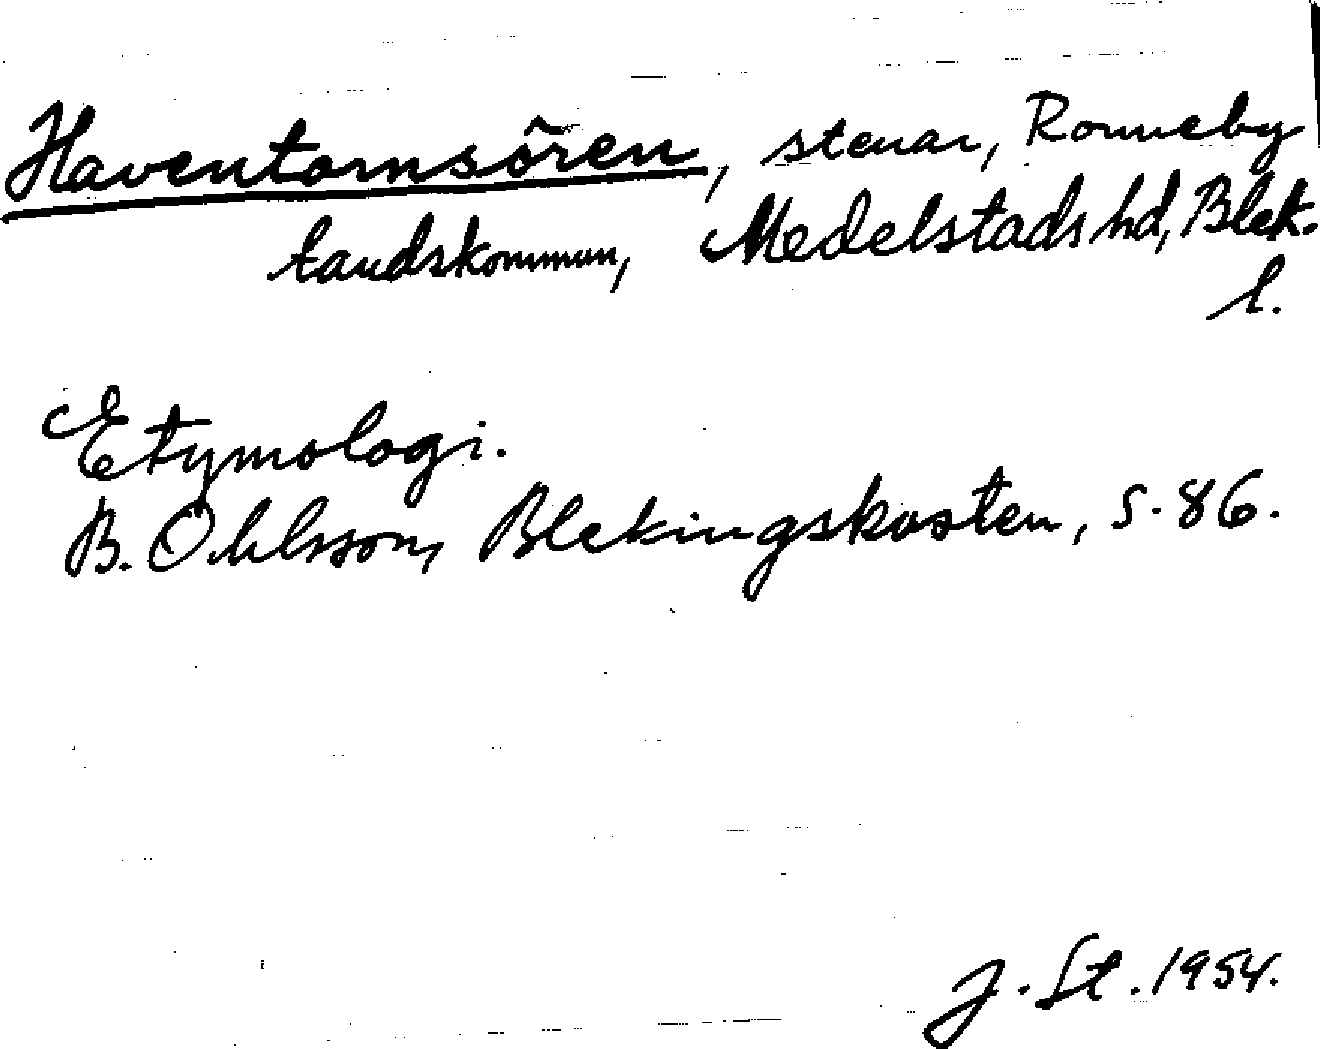 Haventornsören, stenar, Ronneby
landskommun, Medelstads hd, Blek.
l.
Etymologi.
B. Ohlsson, Blekingskusten, s. 86.
J. St. 1954.